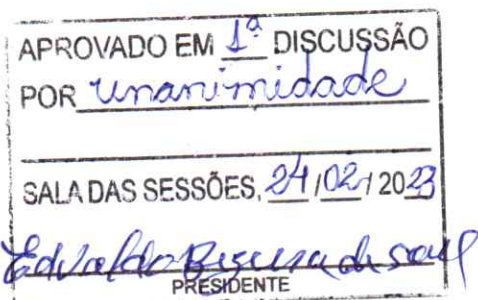 APROVADO EM 1ª DISCUSSÃO
POR unanimidade
SALA DAS SESSÕES, 24/02/2023
Edvaldo Bezerra de
PRESIDENTE